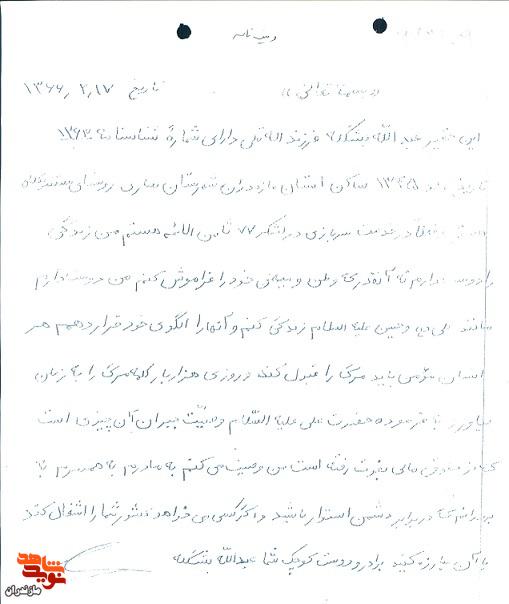 وصیت نامه
«بسمه تعالی» تاریخ ۱۳۶۶٫۲٫۱۷
این حقیر عبد الله بشکله فرزند دارای شمارهٔ شناسنامه
تاریخ تولد ۱۳۴۵ ساکن استان مازندران شهرستان ساری روستای
خدمت سربازی در لشکر ۷۷ ثامن الائمه هستم من زندگی
را دوست ندارم تا آنقدر که وطن و میهن خود را فراموش کنم من دوست دارم
مانند علی و حسین علیه السلام زندگی کنم و آنها را الگوی خود قرار دهم هر
انسان مؤمنی باید مرگ را قبول کند و روزی هزار بار کلمه مرگ را به زبان
بیاورد با فرموده حضرت علی علیه السّلام وصیّت جبران آن چیزی است
که از حقوق مالی رفته است من وصیت می کنم به مادرم به همسرم به
برادرانم که در برابر دشمن استوار باشید و اگر کسی می خواهد کشور شما را اشغال کند
با آن مبارزه کنید برادر و دوست کوچک شما عبدالله بشکله
نوید شاهد
مازندران